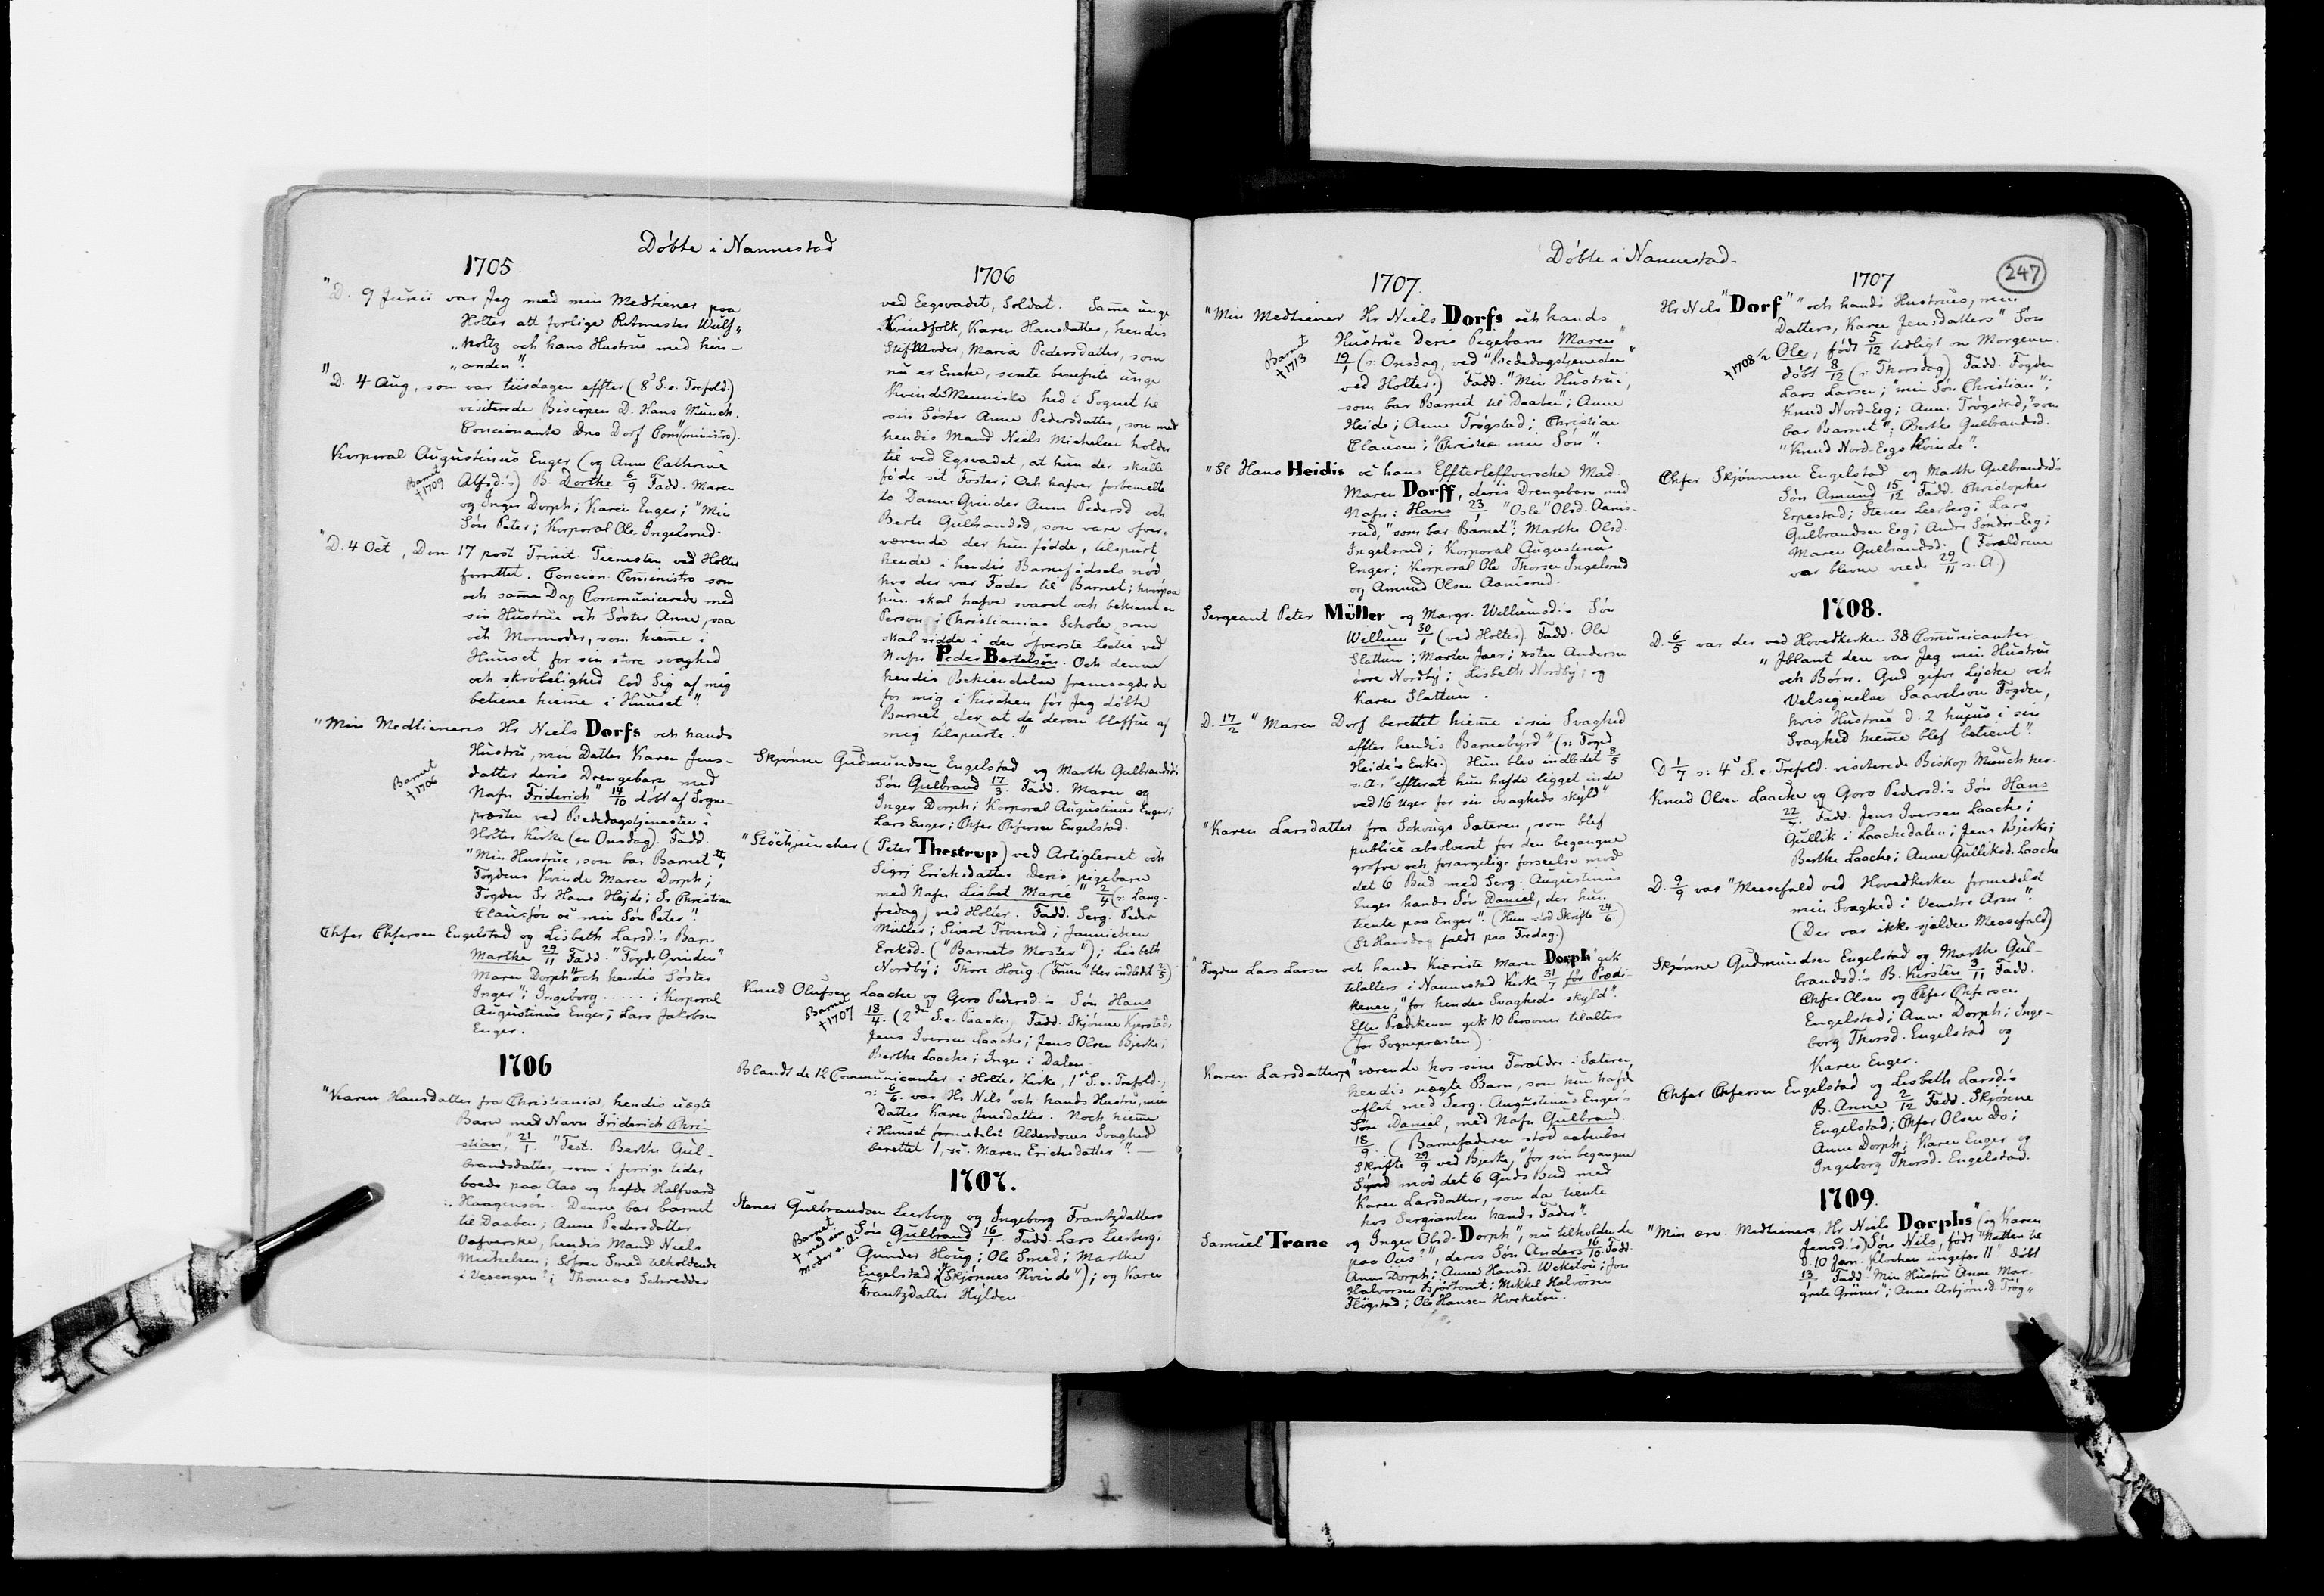 Döbte i Nannestad
1705.
"D. 9 Junii var Jeg med min Medtiener paa
Holter att forlige Ritmester Wulf„
„noltz och hans Hustrue med hin-
„anden".
"D. 4 Aug, som var tiisdagen effter (8de S. e. Trefold.)
visiterede Biscopen D. Hans Munch.
Concionante dno Dorf Com(ministro).
Korporal Augustinus Enger (og Anne Cathrine
Barnet
† 1709
Alfsd:s) B. Dorthe 6/9 Fadd. Maren
og Inger Dorph; Karen Enger; "Min
Søn Peter; Korporal Ole Ingelsrud.
"D. 4 Oct, Dom 17 post Trinit. Tienesten ved Holter
forrettet. Concion. Comministro som
och samme Dag Communicerede med
sin Hustrue och Søster Anne, saa
och Mormoder, som hieme i
Huuset for sin store svaghed
och skröbelighed lod Sig af mig
betiene hieme i Huuset".
"Min Medtieneres Hr Niels Dorfs och hands
Hustru, min Datter Karen Jens-
datter deris Drengebarn med
Barnet
† 1706
Nafn Friderich" 14/10 döbt af Sogne-
præsten ved Bededagstjenesten i
Holter Kirke (en Onsdag). Fadd.
"Min Hustrue, som bar Barnet";
Fogdens Kvinde Maren Dorph;
Fogden Sr Hans Hejde; Sr Christian
Clausön oc min Sön Peter".
Chfer Chfersen Engelstad og Lisbeth Larsd:s Barn
Marthe 29/11 Fadd. "Fogd Qvinden"
Maren Dorph "och hendis Søster
Inger"; Ingeborg.....; Korporal
Augustinus Enger; Lars Jakobsen
Enger.
1706
"Karen Hansdatter fra Christiania, hendis uægte
Barn med Navn Friderich Chri-
stian," 21/1. "Test. Berthe Gul-
brandsdatter, som i forrige tider
boede paa Aas og hafde Halfvard
Haagensön. Denne bar barnet
til Daaben; Anne Pedersdatter
Vafverske, hendis Mand Niels
Michelsen; Sofren Smed tilholdende
i Vesengen"; Thomas Schredder
1706
ved Eegsvadet, Soldat. Samme unge
Kvindfolk, Karen Hansdatter, hendis
StifModer, Maria Pedersdatter, som
nu er Encke, sente benefnte unge
KvindeMenniske hid i Sognet til
sin Söster Anne Pedersdatter, som med
hendis Mand Niels Michelsen holder
til ved Egsvadet, at hun der skulle
föde sit Foster; Och hafver forbemelte
to DanneQvinder Anne Pedersd och
Berte Gulbrandsd, som vare ofver„
værende der hun födde, tilspurt
hende i hendis Barnefödsels nöd
hvo der var Fader til Barnet; hvorpaa
hun skal hafve svaret och bekient en
Person i Christiania Schole, som
skal sidde i den öfverste Lectie ved
Nafn Peder Bertelsön. Och denne
hendis Bekiendelse fremsagde de
for mig i Kirchen för Jeg döbte
Barnet, der at de derom bleffve af
mig tilspurte."
Skjönne Gudmundsen Engelstad og Marthe Gulbrandsd:s
Sön Gulbrand 17/3. Fadd. Maren og
Inger Dorph; Korporal Augustinus Enger;
Lars Enger; Chfer Chfersen Engelstad.
"Stöchjuncher (Peter Thestrup) ved Artigleriet och
Sigrj Erichsdatter deris pigebarn
med Nafn Lisbet Marie" 2/4 (: Lang-
fredag) ved Holter. Fadd. Serg. Peder
Müller; Sivert Tronrud; Jannichen
Ericksd. ("Barnets Moster"); Lisbeth
Nordby; Thore Houg. ("Fruen" blev indledt 2/5)
Knud Olufsen Laache og Goro Pedersd:s Sön Hans
Barnet
† 1707
18/4. (2den S. e. Paaske.) Fadd. Skjönne Kjerstad;
Jens Iversen Laache; Jens Olsen Bjerke;
Berthe Laache; Inge i Dalen.
Blandt de 12 Communicanter i Holter Kirke, 1ste S. e. Trefold.,
6/6. var Hr Nils "och hands Hustru, min
Datter Karen Jensdatter. Noch hieme
i Huuset formedelst Alderdoms Svaghed
berettet 1, . Maren Erichsdatter". —
1707.
Stener Gulbrandsen Leerberg og Ingeborg Frantzdatters
Barnet
† med sin
Moder s. A.
Sön Gulbrand 16/1. Fadd. Lars Leerberg;
Gunder Houg; Ole Smed; Marthe
Engelstad ("Skjönnes Kvinde"); og Karen
Frantzdatter Hylden.
Döbte i Nannestad.
247
1707.
"Min Medtiener Hr Niels Dorfs och hands
Hustrue Deris Pigebarn Maren"
Barnet
† 1713
19/1 (: Onsdag, ved "Bededagstjenesten"
ved Holter.) Fadd. "Min Hustrue,
som bar Barnet til Daaben"; Anne
Heide; Anne Trögstad; Christian
Clausen; "Christian min Sön".
"Sl Hans Heidis oc hans Effterleffversche Mad.
Maren Dorff, deris Drengebarn med
Nafn: Hans 23/1 "Osle" Olsd. Aamis-
rud, "som bar Barnet"; Marthe Olsd.
Ingelsrud; Korporal Augustinus
Enger; Korporal Ole Thorsen Ingelsrud
og Amund Olsen Aamisrud.
Sergeant Peter Müller og Margr. Wellumsd:s Sön
Willum 30/1 (ved Holter). Fadd. Ole
Slattum; Morten Jaer; xsten Andersen
övre Nordby; Lisbeth Nordby; og
Karen Slattum.
D. 17/2 "Maren Dorf berettet hieme i sin Svaghed
effter hendis Barnebyrd" (: Fogd
Heide's Enke.) Hun blev indledet 8/5
s. A., "effterat hun hafde ligget inde
ved 16 Uger for sin Svagheds skyld"
"Karen Larsdatter fra Schougs Sæteren, som blef
publicè absolveret for den begangne
grofve och forargelige forseelse mod
det 6 Bud med Serg. Augustinus
Enges hands Sön Daniel, der hun
tiente paa Enger". (Hun stod Skrifte 24/6.)
(St Hansdag faldt paa Fredag.)
"Fogden Lars Larsen och hands Kiæriste Maren Dorph" gik
tilalters i Nannestad Kirke 31/7 för Prædi-
kenen, "for hendes Svagheds skyld".
Efter Prædikenen gik 10 Personer tilalters
(for Sognepræsten).
Karen Larsdatter, "værende hos sine Forældre i Sæteren,
hendis uægte Barn, som hun hafde
aflet med Serg. Augustinus Enger's
Sön Daniel, med Nafn Gulbrand.
18/9. (Barnefaderen stod aabenbar
Skrifte 29/9 ved Bjerke, "for sin begangne
Synd mod det 6 Guds Bud med
Karen Larsdatter, som da tiente
hos Sergianten hands Fader".
Samuel Trane og Inger Olsd. Dorph", nu tilholdende
paa Ous?", deres Sön Anders 16/10. Fadd.
Anne Dorph; Anne Hansd. Weketou; Jon
Halvorsen Hjortomt; Mikkel Halvorsen
Flögstad; Ole Hansen Hveketou.
1707
Hr Nils "Dorf" "och hands Hustrues, min
Datters, Karen Jensdatters" Sön
† 1708 1/2
Ole, född 5/12 tidligt om Morgenen.
döbt 8/12 (: Thorsdag) Fadd. Fogden
Lars Larsen; "min Sön Christian";
Knud Nord-Eeg; Anne Trögstad, "som
bar Barnet"; Berthe Gulbrandsd.
"Knud Nord-Eegs Kvinde".
Chfer Skjönnesen Engelstad og Marthe Gulbrandsd:s
Sön Amund 15/12 Fadd. Christopher
Erpestad; Stener Leerberg; Lars
Gulbrandsen Eeg; Anders Söndre-Eeg;
Maren Gulbrandsd. (Forældrene
var blevne viede 29/11 s. A.)
1708.
D. 6/5 var der ved Hovedkirken 38 Communicanter.
"Iblant dem var Jeg min Hustrue
och Börn. Gud gifve Lycke och
Velsignelse Saavelsom Fogden,
hvis Hustrue d. 2 hujus i sin
Svaghed hieme blef betient".
D 1/7 : 4de S. e. Trefold. visiterede Biskop Munch her.
Knud Olsen Laache og Goro Pedersd:s Sön Hans
22/7. Fadd. Jens Iversen Laache;
Gullik i Laachedalen; Jens Bjerke;
Berthe Laache; Anne Gulliksd. Laache
D. 9/9 var "Messefald ved Hovedkirken formedelst
min Svaghed i Venstre Arm".
(Der var ikke sjelden Messefald)
Skjönne Gudmundsen Engelstad og Marthe Gul-
brandsd:s B. Kirsten 3/11 Fadd.
Chfer Olsen og Chfer Chfersen
Engelstad; Anne Dorph; Inge-
borg Thorsd. Engelstad og
Karen Enger.
Chfer Chfersen Engelstad og Lisbeth Larsd:s
B. Anne 2/12 Fadd. Skjönne
Engelstad; Chfer Olsen do;
Anne Dorph; Karen Enger og
Ingeborg Thorsd. Engelstad.
1709.
"Min ærv. Medtieners Hr Niels Dorphs" (og Karen
Jensd:s) Sön Nils, född "Natten til
d. 10 Jan. Klochen ungefer 11" döbt
13/1. Fadd. "Min Hustru Anne Mar-
grete Grüner"; Anne Asbjörnsd. Trög„